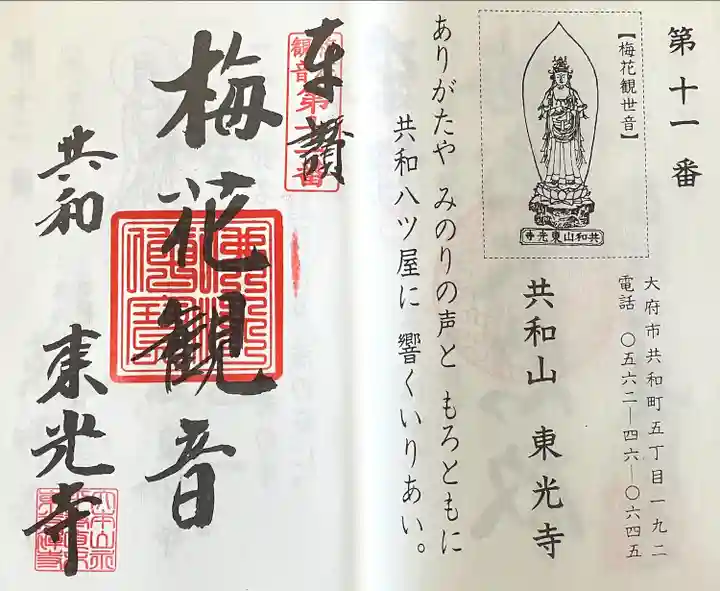 第十一番
【梅花観世音】
共和山東光寺
大府市共和町五丁目一九二
電話 〇五六二―四六―〇六四五
共和山 東光寺
ありがたや みのりの声と もろともに
共和八ツ屋に 響くいりあい。
奉讃
観音第十一番
梅花観音
共和 東光寺